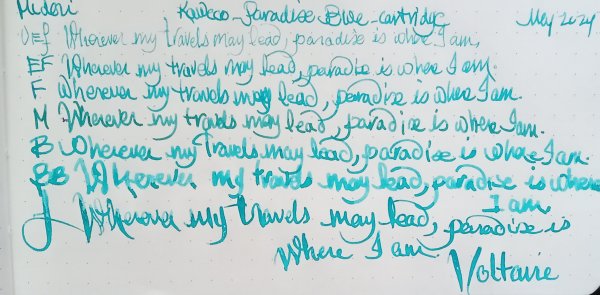 Midori Kaweco-Paradise Blue-cartridge May 2024
UEF Wherever my travels may lead, paradise is where I am.
EF Wherever my travels may lead, paradise is where I am.
F Wherever my travels may lead, paradise is where I am.
M Wherever my travels may lead, paradise is where I am.
B Wherever my travels may lead, paradise is where I am.
BB Wherever my travels may lead, paradise is where
I am
Wherever my travels may lead, paradise is
where I am.
Voltaire